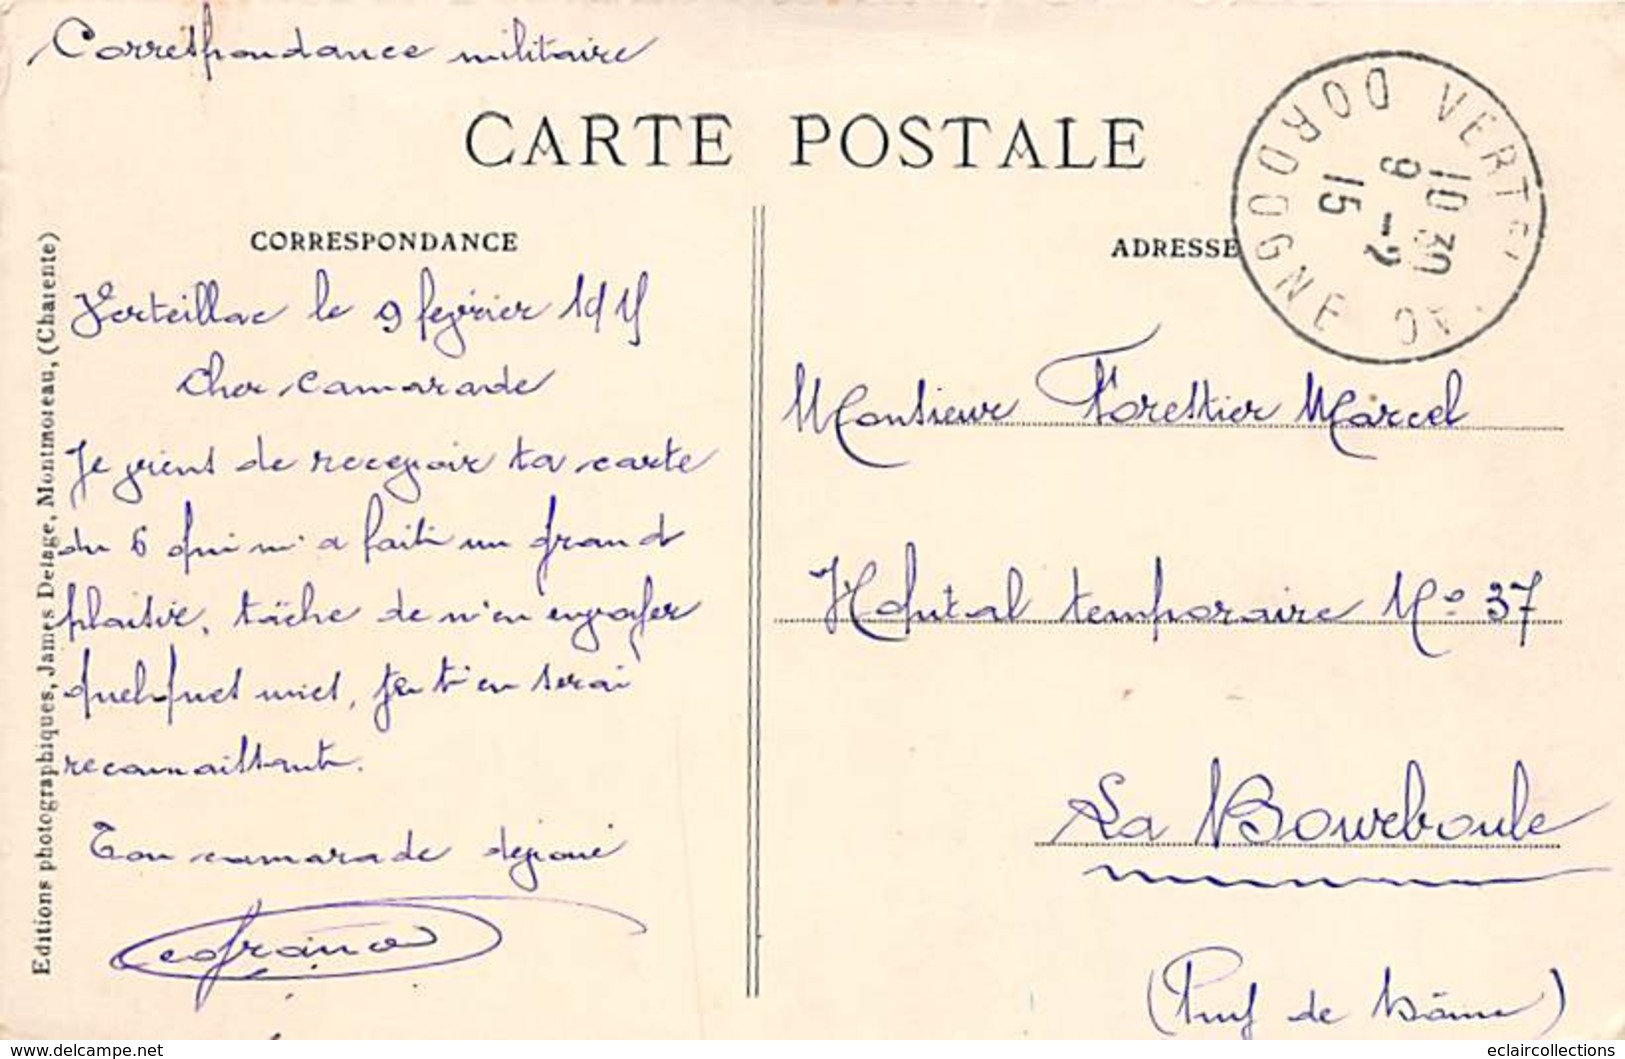 Correspondance militaire
CARTE POSTALE
CORRESPONDANCE
ADRESSE
DORDOGNE VERTEILLAC
10 30
9 -2
15
Verteillac le 9 février 1915
Cher camarade
Je viens de recevoir ta carte
du 6 qui m'a fait un grand
plaisir, tâche de m'en envoyer
quelques unes, je t'en serai
reconnaissant.
Ton camarade dévoué
Monsieur Forestier Marcel
Hôpital temporaire No 37
La Bourboule
(Puy de Dôme)
Editions photographiques, James Delage, Montmoreau, (Charente)
www.delcampe.net
eclaircollections